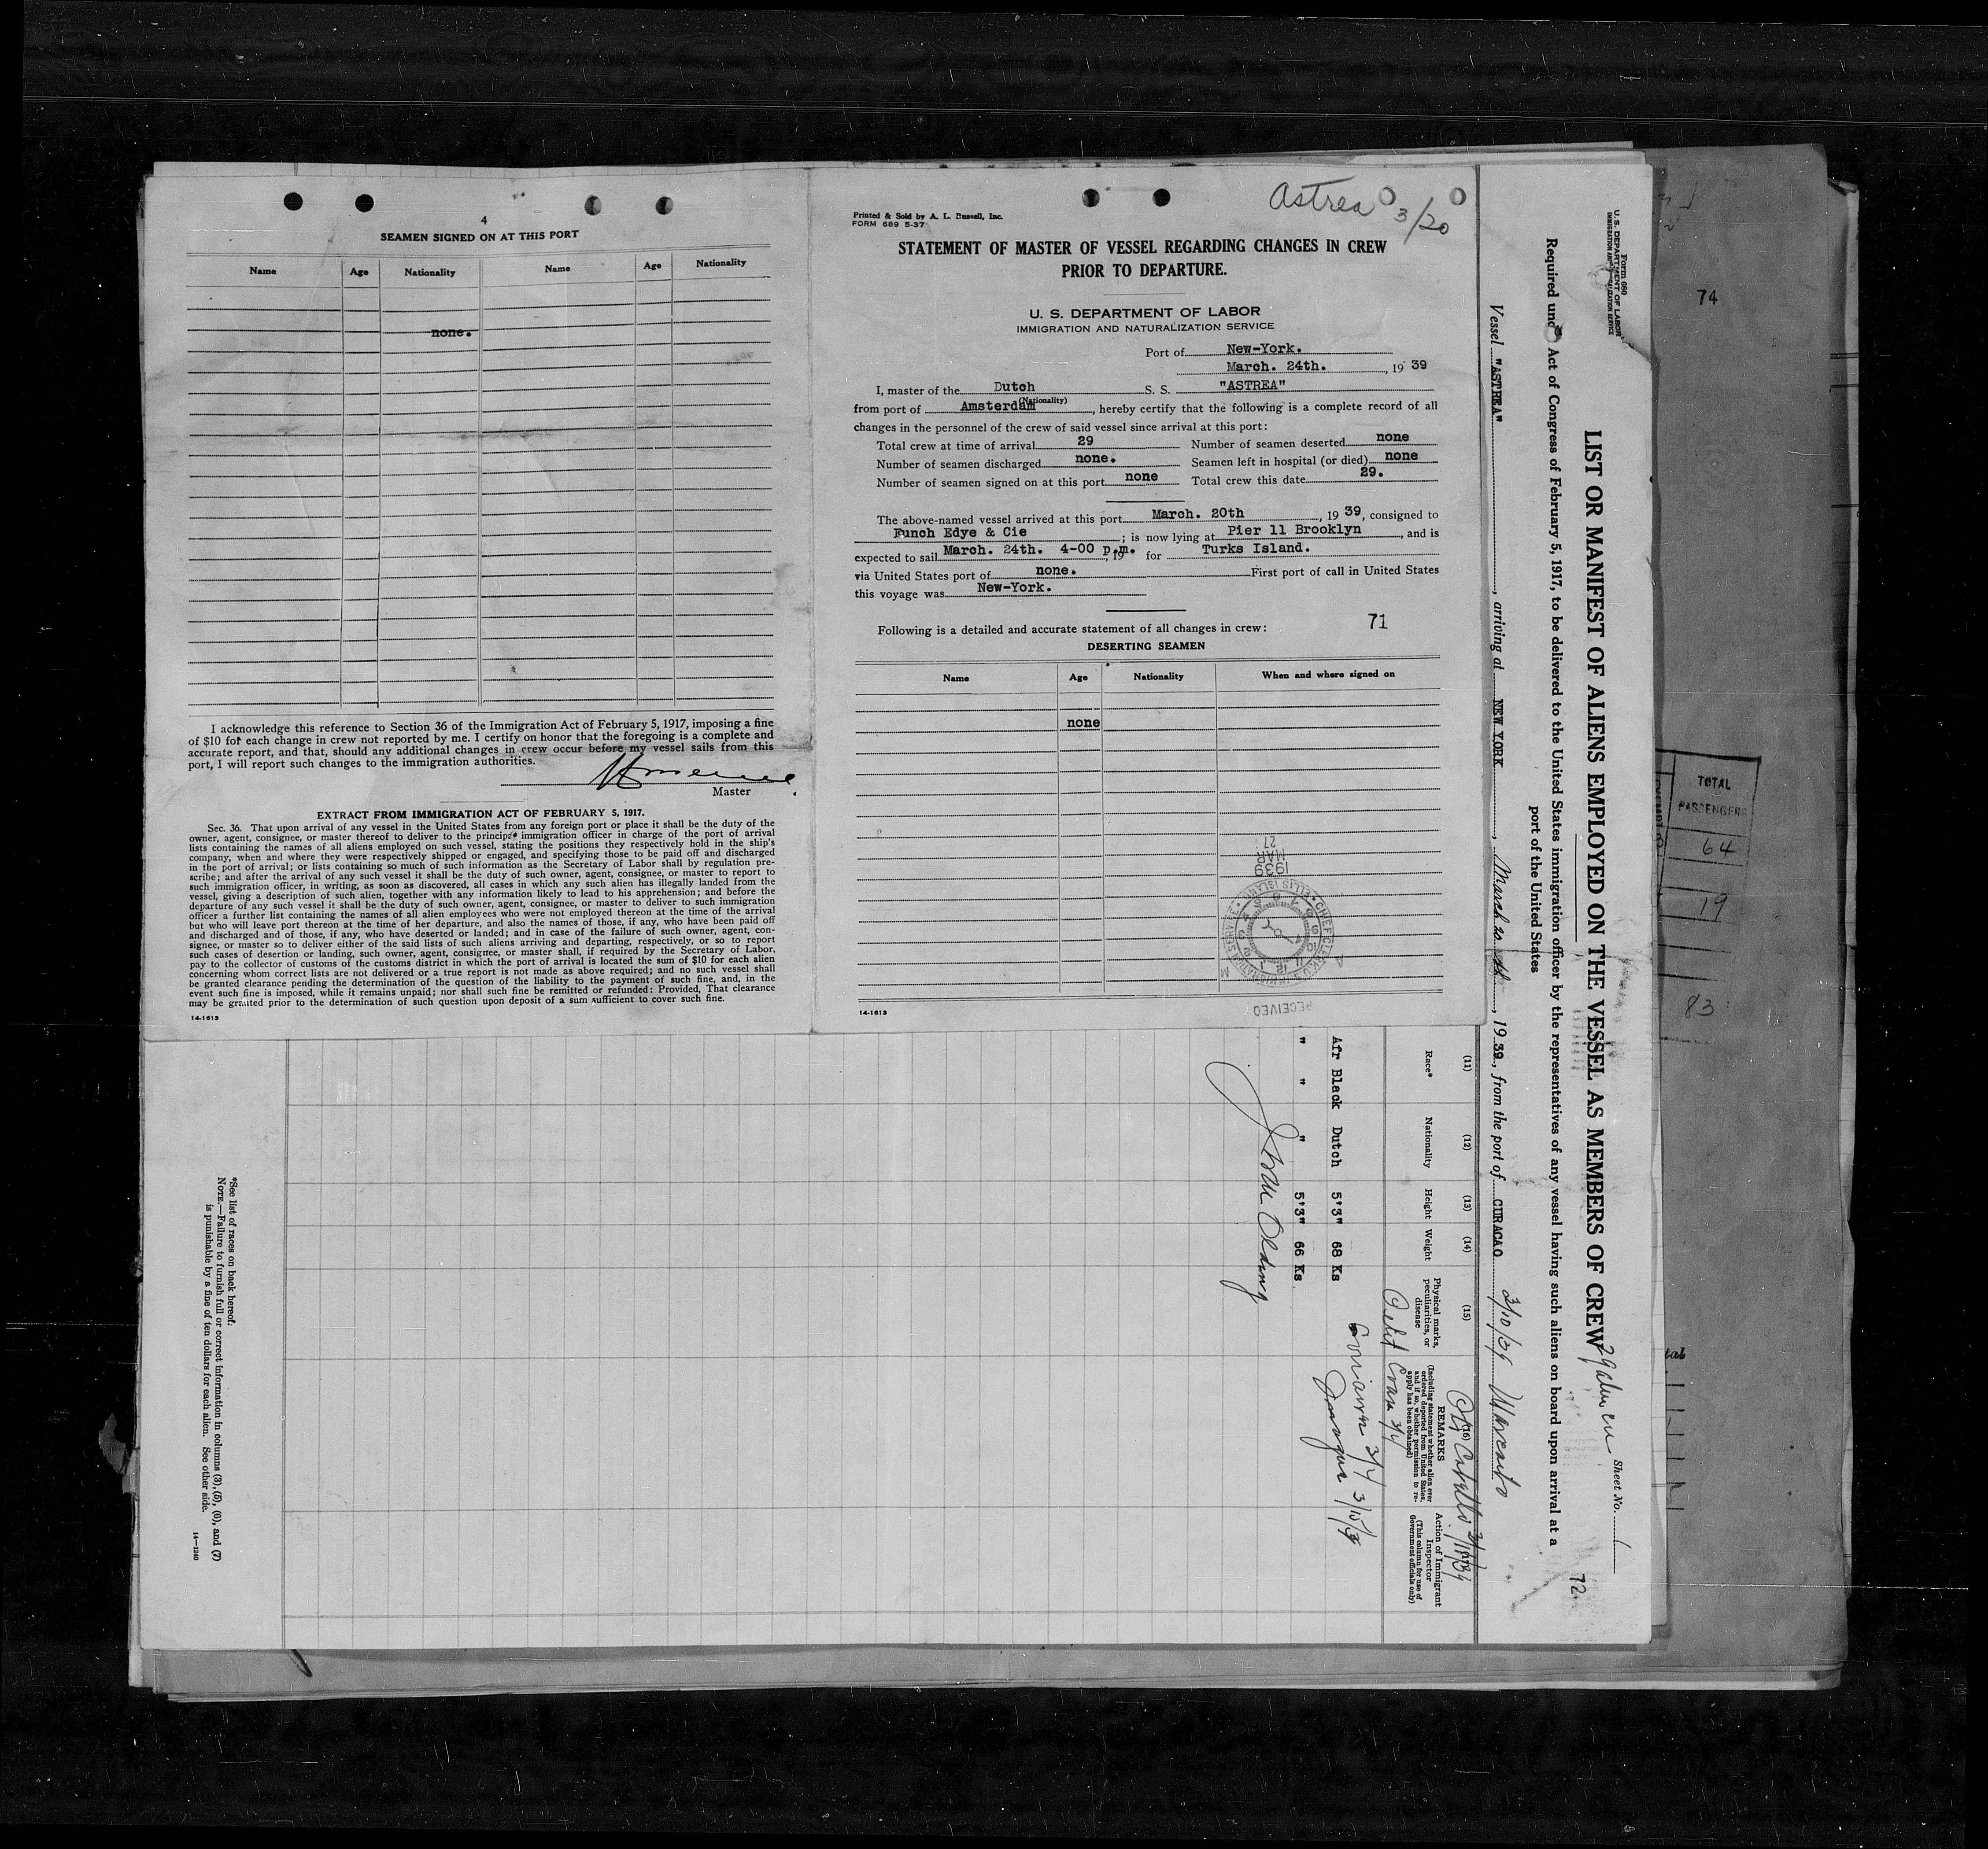 4
SEAMEN SIGNED ON AT THIS PORT
Name Age Nationality Name Age Nationality
none.
I acknowledge this reference to Section 36 of the Immigration Act of February 5, 1917, imposing a fine
of $10 for each change in crew not reported by me. I certify on honor that the foregoing is a complete and
accurate report, and that, should any additional changes in crew occur before my vessel sails from this
port, I will report such changes to the immigration authorities.
Master
EXTRACT FROM IMMIGRATION ACT OF FEBRUARY 5, 1917.
Sec. 36. That upon arrival of any vessel in the United States from any foreign port or place it shall be the duty of the
owner, agent, consignee, or master thereof to deliver to the principal immigration officer in charge of the port of arrival
lists containing the names of all aliens employed on such vessel, stating the positions they respectively hold in the ship's
company, when and where they were respectively shipped or engaged, and specifying those to be paid off and discharged
in the port of arrival; or lists containing so much of such information as the Secretary of Labor shall by regulation pre-
scribe; and after the arrival of any such vessel it shall be the duty of such owner, agent, consignee, or master to report to
such immigration officer, in writing, as soon as discovered, all cases in which any such alien has illegally landed from the
vessel, giving a description of such alien, together with any information likely to lead to his apprehension; and before the
departure of any such vessel it shall be the duty of such owner, agent, consignee, or master to deliver to such immigration
officer a further list containing the names of all alien employees who were not employed thereon at the time of the arrival
but who will leave port thereon at the time of her departure, and also the names of those, if any, who have been paid off
and discharged and of those, if any, who have deserted or landed; and in case of the failure of such owner, agent, con-
signee, or master so to deliver either of the said lists of such aliens arriving and departing, respectively, or so to report
such cases of desertion or landing, such owner, agent, consignee, or master shall, if required by the Secretary of Labor,
pay to the collector of customs of the customs district in which the port of arrival is located the sum of $10 for each alien
concerning whom correct lists are not delivered or a true report is not made as above required; and no such vessel shall
be granted clearance pending the determination of the question of the liability to the payment of such fine, and, in the
event such fine is imposed, while it remains unpaid; nor shall such fine be remitted or refunded: Provided, That clearance
may be granted prior to the determination of such question upon deposit of a sum sufficient to cover such fine.
14-1613
Astrea 3/20
Printed & Sold by A. L. Bussell, Inc.
FORM 689 5-37
STATEMENT OF MASTER OF VESSEL REGARDING CHANGES IN CREW
PRIOR TO DEPARTURE.
U. S. DEPARTMENT OF LABOR
IMMIGRATION AND NATURALIZATION SERVICE
Port of New-York.
March. 24th., 19 39
I, master of the Dutch S. S. "ASTREA"
(Nationality)
from port of Amsterdam, hereby certify that the following is a complete record of all
changes in the personnel of the crew of said vessel since arrival at this port:
Total crew at time of arrival 29 Number of seamen deserted none
Number of seamen discharged none. Seamen left in hospital (or died) none
Number of seamen signed on at this port none Total crew this date 29.
The above-named vessel arrived at this port March. 20th, 19 39, consigned to
Funch Edye & Cie; is now lying at Pier 11 Brooklyn, and is
expected to sail March. 24th. 4-00 p.m., 19 for Turks Island.
via United States port of none. First port of call in United States
this voyage was New-York.
71
Following is a detailed and accurate statement of all changes in crew:
DESERTING SEAMEN
Name Age Nationality When and where signed on
none
1939
MAR
27
CHIEF CLERK'S
IMMIGRATION SERVICE
ELLIS ISLAND
RECEIVED
14-1613
Form 680
U. S. DEPARTMENT OF LABOR
IMMIGRATION AND NATURALIZATION SERVICE
Sheet No. 1
LIST OR MANIFEST OF ALIENS EMPLOYED ON THE VESSEL AS MEMBERS OF CREW
72
Required under Act of Congress of February 5, 1917, to be delivered to the United States immigration officer by the representatives of any vessel having such aliens on board upon arrival at a
port of the United States
Vessel "ASTREA", arriving at NEW YORK, March 20 th, 1939, from the port of CURACAO 3/10/39
(11) (12) (13) (14) (15) (16) (17)
Race* Nationality Height Weight
Physical marks, peculiarities, or disease
REMARKS
(Including statement whether alien ever ordered deported from United States, and if so, whether permission to re-apply has been obtained)
Action of Immigrant Inspector
(This column for use of Government officials only)
Afr Black Dutch 5'3" 68 Ks
" " " 5'3" 66 Ks
*See list of races on back hereof.
NOTE.—Failure to furnish full or correct information in columns (3), (5), (6), and (7)
is punishable by a fine of ten dollars for each alien. See other side.
14-1240
74
TOTAL
PASSENGERS
64
19
83